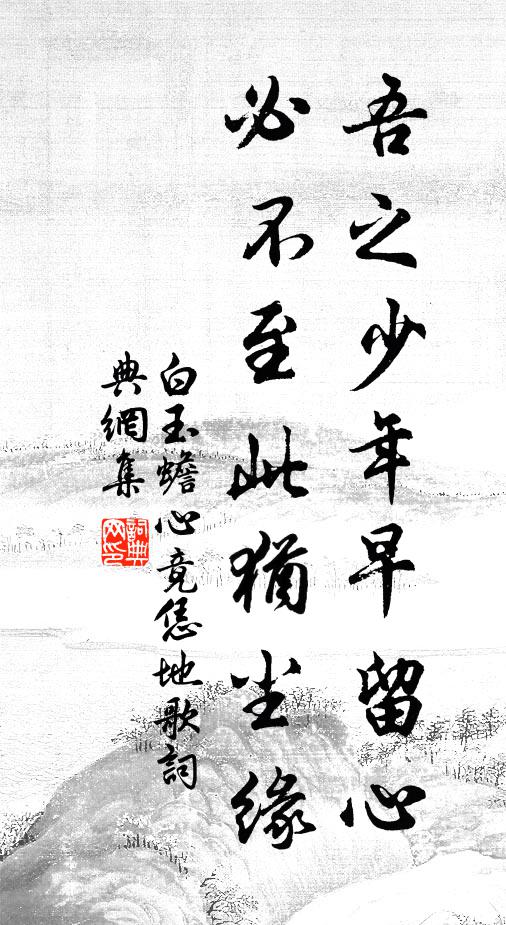 吾之少年早留心
必不至此猶尘緣
白玉蟾心竟恁地歌詞
典網集
詞典网印